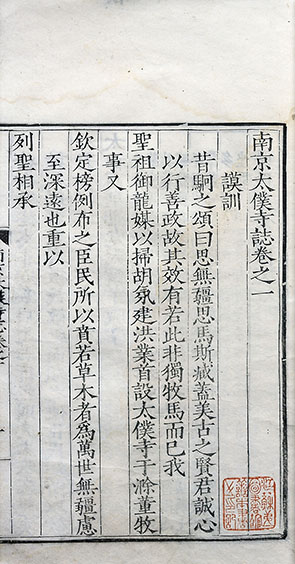 南京太僕寺誌卷之一
謨訓
昔駉之頌曰思無疆思馬斯臧蓋美古之賢君誠心
以行善政故其效有若此非獨牧馬而已我
聖祖御龍媒以掃胡氛建洪業首設太僕寺于滁董牧
事又
欽定榜例布之臣民所以賁若草木者為萬世無疆慮
至深遠也重以
列聖相承